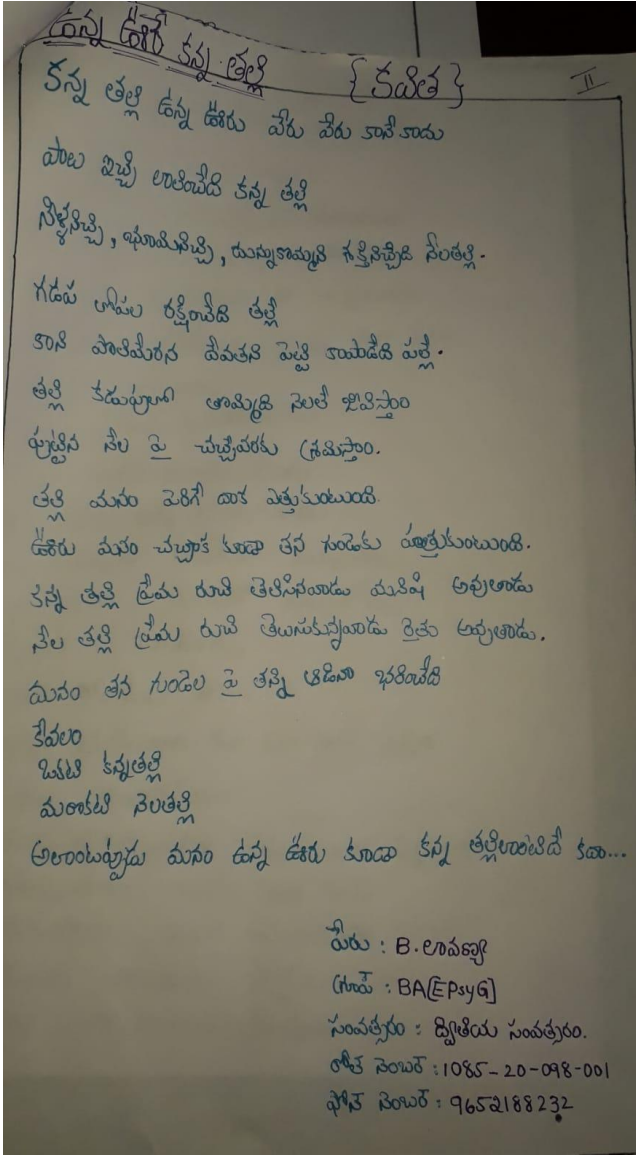 ఉన్న ఊరే కన్న తల్లి {కవిత} II
కన్న తల్లి ఉన్న ఊరు వేరు వేరు కానే కాదు
పాలు ఇచ్చి లాలించేది కన్న తల్లి
నీళ్ళనిచ్చి, భూమినిచ్చి, దున్నుకొమ్మని శక్తినిచ్చేది నేలతల్లి.
గడప లోపల రక్షించేది తల్లే
కాని పొలిమేరన దేవతని పెట్టి కాపాడేది పల్లే.
తల్లి కడుపులో తొమ్మిది నెలలే జీవిస్తాం
పుట్టిన నేల పై చచ్చేవరకు శ్రమిస్తాం.
తల్లి మనం పెరిగే దాక ఎత్తుకుంటుంది
ఊరు మనం చచ్చాక కూడా తన గుండెకు హత్తుకుంటుంది.
కన్న తల్లి ప్రేమ రుచి తెలిసినవాడు మనిషి అవుతాడు
నేల తల్లి ప్రేమ రుచి తెలుసుకున్నవాడు రైతు అవుతాడు.
మనం తన గుండెల పై తన్ని ఆడినా భరించేది
కేవలం
ఒకటి కన్నతల్లి
మరొకటి నెలతల్లి
అలాంటప్పుడు మనం ఉన్న ఊరు కూడా కన్న తల్లిలాంటిదే కదా...
పేరు : B. లావణ్యా
గ్రూప్ : BA[EPsyG]
సంవత్సరం : ద్వితీయ సంవత్సరం.
రోల్ నెంబర్ : 1085-20-098-001
ఫోన్ నెంబర్ : 9652188232